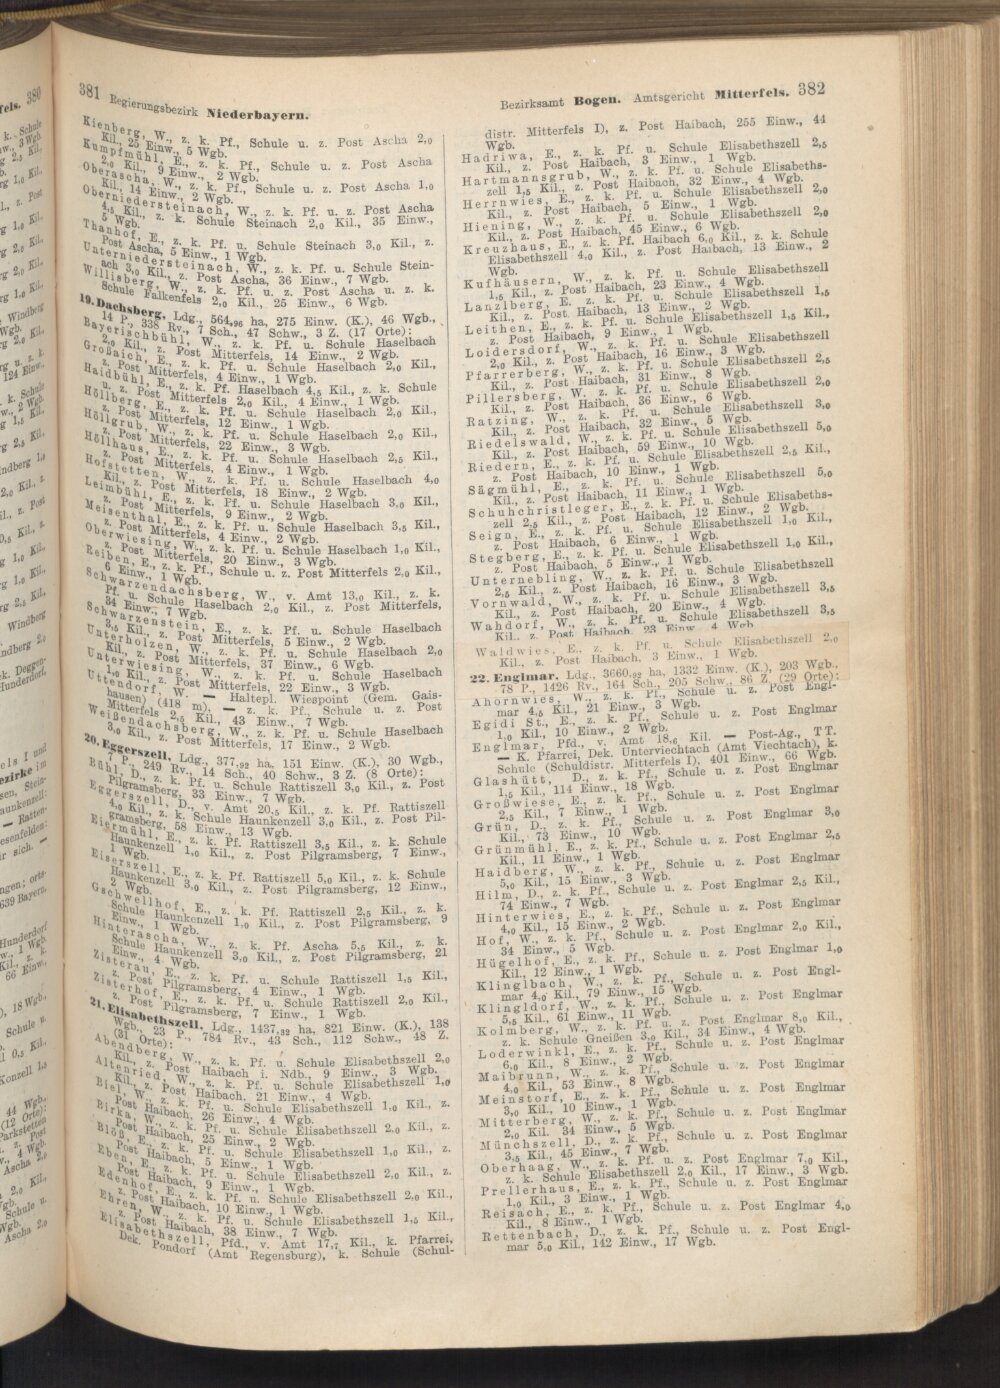 381 Regierungsbezirk Niederbayern.
Kienberg, W., z. k. Pf., Schule u. z. Post Ascha 2,0
Kil., 25 Einw., 5 Wgb.
Kumpfmühl, E., z. k. Pf., Schule u. z. Post Ascha
2,0 Kil., 9 Einw., 2 Wgb.
Oberascha, W., z. k. Pf., Schule u. z. Post Ascha 1,0
Kil., 14 Einw., 2 Wgb.
Oberniedersteinach, W., z. k. Pf. u. z. Post Ascha
4,5 Kil., z. k. Schule Steinach 2,0 Kil., 35 Einw.,
5 Wgb.
Thanhof, E., z. k. Pf. u. Schule Steinach 3,0 Kil., z.
Post Ascha, 5 Einw., 1 Wgb.
Unterniedersteinach, W., z. k. Pf. u. Schule Stein-
ach 3,0 Kil., z. Post Ascha, 36 Einw., 7 Wgb.
Willisberg, W., z. k. Pf. u. z. Post Ascha u. z. k.
Schule Falkenfels 2,0 Kil., 25 Einw., 6 Wgb.
19. Dachsberg, Ldg., 564,96 ha, 275 Einw. (K.), 46 Wgb.,
14 P., 338 Rv., 7 Sch., 47 Schw., 3 Z. (17 Orte):
Bayerischbühl, W., z. k. Pf. u. Schule Haselbach
2,0 Kil., z. Post Mitterfels, 14 Einw., 2 Wgb.
Großaich, E., z. k. Pf. u. Schule Haselbach 2,0 Kil.,
z. Post Mitterfels, 4 Einw., 1 Wgb.
Haidbühl, E., z. k. Pf. Haselbach 4,5 Kil., z. k. Schule
u. z. Post Mitterfels 2,0 Kil., 4 Einw., 1 Wgb.
Höllberg, E., z. k. Pf. u. Schule Haselbach 2,0 Kil.,
z. Post Mitterfels, 12 Einw., 1 Wgb.
Höllgrub, W., z. k. Pf. u. Schule Haselbach 2,0 Kil.,
z. Post Mitterfels, 22 Einw., 3 Wgb.
Höllhaus, E., z. k. Pf. u. Schule Haselbach 2,5 Kil.,
z. Post Mitterfels, 4 Einw., 1 Wgb.
Hofstetten, W., z. k. Pf. u. Schule Haselbach 4,0
Kil., z. Post Mitterfels, 18 Einw., 2 Wgb.
Leimbühl, E., z. k. Pf. u. Schule Haselbach 3,0 Kil.,
z. Post Mitterfels, 9 Einw., 2 Wgb.
Meisenthal, E., z. k. Pf. u. Schule Haselbach 3,5 Kil.,
z. Post Mitterfels, 4 Einw., 2 Wgb.
Oberwiesing, W., z. k. Pf. u. Schule Haselbach 1,0 Kil.,
z. Post Mitterfels, 20 Einw., 3 Wgb.
Reiben, E., z. k. Pf., Schule u. z. Post Mitterfels 2,0 Kil.,
6 Einw., 1 Wgb.
Schwarzendachsberg, W., v. Amt 13,0 Kil., z. k.
Pf. u. Schule Haselbach 2,0 Kil., z. Post Mitterfels,
34 Einw., 7 Wgb.
Schwarzenstein, E., z. k. Pf. u. Schule Haselbach
3,5 Kil., z. Post Mitterfels, 5 Einw., 2 Wgb.
Unterholzen, W., z. k. Pf. u. Schule Haselbach 2,0
Kil., z. Post Mitterfels, 37 Einw., 6 Wgb.
Unterwiesing, W., z. k. Pf. u. Schule Haselbach
1,0 Kil., z. Post Mitterfels, 22 Einw., 3 Wgb.
Uttendorf, W. — Haltepl. Wiespoint (Gem. Gais-
hausen) (418 m). — z. k. Pf., Schule u. z. Post
Mitterfels 2,5 Kil., 43 Einw., 7 Wgb.
Weißendachsberg, W., z. k. Pf. u. Schule Haselbach
3,0 Kil., z. Post Mitterfels, 17 Einw., 2 Wgb.
20. Eggerszell, Ldg., 377,92 ha, 151 Einw. (K.), 30 Wgb.,
7 P., 249 Rv., 14 Sch., 40 Schw., 3 Z. (8 Orte):
Bühl, D., z. k. Pf. u. Schule Rattiszell 3,0 Kil., z. Post
Pilgramsberg, 33 Einw., 7 Wgb.
Eggerszell, D., v. Amt 20,5 Kil., z. k. Pf. Rattiszell
4,0 Kil., z. k. Schule Haunkenzell 3,0 Kil., z. Post Pil-
gramsberg, 58 Einw., 13 Wgb.
Eiermühl, E., z. k. Pf. Rattiszell 3,5 Kil., z. k. Schule
Haunkenzell 1,0 Kil., z. Post Pilgramsberg, 7 Einw.,
1 Wgb.
Eiserszell, E., z. k. Pf. Rattiszell 5,0 Kil., z. k. Schule
Haunkenzell 3,0 Kil., z. Post Pilgramsberg, 12 Einw.,
2 Wgb.
Gschwellhof, E., z. k. Pf. Rattiszell 2,5 Kil., z. k.
Schule Haunkenzell 1,0 Kil., z. Post Pilgramsberg, 9
Einw., 1 Wgb.
Hinterascha, W., z. k. Pf. Ascha 5,5 Kil., z. k.
Schule Haunkenzell 3,0 Kil., z. Post Pilgramsberg, 21
Einw., 4 Wgb.
Zisterau, E., z. k. Pf. u. Schule Rattiszell 1,5 Kil.,
z. Post Pilgramsberg, 4 Einw., 1 Wgb.
Zisterhof, E., z. k. Pf. u. Schule Rattiszell 2,0 Kil.,
z. Post Pilgramsberg, 7 Einw., 1 Wgb.
21. Elisabethszell, Ldg., 1437,32 ha, 821 Einw. (K.), 138
Wgb., 23 P., 784 Rv., 43 Sch., 112 Schw., 48 Z.
(31 Orte):
Abendberg, W., z. k. Pf. u. Schule Elisabethszell 2,0
Kil., z. Post Haibach i. Ndb., 9 Einw., 3 Wgb.
Altenried, W., z. k. Pf. u. Schule Elisabethszell 1,0
Kil., z. Post Haibach, 21 Einw., 4 Wgb.
Biel, W., z. k. Pf. u. Schule Elisabethszell 1,0 Kil., z.
Post Haibach, 26 Einw., 4 Wgb.
Birka, W., z. k. Pf. u. Schule Elisabethszell 2,0 Kil., z.
Post Haibach, 25 Einw., 2 Wgb.
Blöß, E., z. k. Pf. u. Schule Elisabethszell 1,0 Kil., z.
Post Haibach, 5 Einw., 1 Wgb.
Eben, E., z. k. Pf. u. Schule Elisabethszell 2,0 Kil., z.
Post Haibach, 9 Einw., 1 Wgb.
Edenhof, E., z. k. Pf. u. Schule Elisabethszell 2,0 Kil.,
z. Post Haibach, 10 Einw., 1 Wgb.
Ehren, W., z. k. Pf. u. Schule Elisabethszell 1,5 Kil.,
z. Post Haibach, 38 Einw., 7 Wgb.
Elisabethszell, Pfd., v. Amt 17,7 Kil., k. Pfarrei,
Dek. Pondorf (Amt Regensburg), k. Schule (Schul-
Bezirksamt Bogen. Amtsgericht Mitterfels. 382
distr. Mitterfels I), z. Post Haibach, 255 Einw., 44
Wgb.
Hadriwa, E., z. k. Pf. u. Schule Elisabethszell 2,5
Kil., z. Post Haibach, 3 Einw., 1 Wgb.
Hartmannsgrub, W., z. k. Pf. u. Schule Elisabeths-
zell 1,5 Kil., z. Post Haibach, 32 Einw., 4 Wgb.
Herrnwies, E., z. k. Pf. u. Schule Elisabethszell 2,0
Kil., z. Post Haibach, 5 Einw., 1 Wgb.
Hiening, W., z. k. Pf. u. Schule Elisabethszell 2,0
Kil., z. Post Haibach, 45 Einw., 6 Wgb.
Kreuzhaus, E., z. k. Pf. Haibach 6,0 Kil., z. k. Schule
Elisabethszell 4,0 Kil., z. Post Haibach, 13 Einw., 2
Wgb.
Kufhäusern, W., z. k. Pf. u. Schule Elisabethszell
1,5 Kil., z. Post Haibach, 23 Einw., 4 Wgb.
Lanzlberg, E. z. k. Pf. u. Schule Elisabethszell 1,5
Kil., z. Post Haibach, 13 Einw., 2 Wgb.
Leithen, E., z. k. Pf. u. Schule Elisabethszell 1,5 Kil.,
z. Post Haibach, 9 Einw., 1 Wgb.
Loidersdorf, W., z. k. Pf. u. Schule Elisabethszell
2,0 Kil., z. Post Haibach, 16 Einw., 3 Wgb.
Pfarrerberg, W., z. k. Pf. u. Schule Elisabethszell 2,5
Kil., z. Post Haibach, 31 Einw., 8 Wgb.
Pillersberg, W., z. k. Pf. u. Schule Elisabethszell 2,0
Kil., z. Post Haibach, 36 Einw., 6 Wgb.
Ratzing, W., z. k. Pf. u. Schule Elisabethszell 3,0
Kil., z. Post Haibach, 32 Einw., 5 Wgb.
Riedelswald, W., z. k. Pf. u. Schule Elisabethszell 5,0
Kil., z. Post Haibach, 59 Einw., 10 Wgb.
Riedern, E., z. k. Pf. u. Schule Elisabethszell 2,5 Kil.,
z. Post Haibach, 10 Einw., 1 Wgb.
Sägmühl, E., z. k. Pf. u. Schule Elisabethszell 5,0
Kil., z. Post Haibach, 11 Einw., 1 Wgb.
Schuhchristleger, E., z. k. Pf. u. Schule Elisabeths-
zell 2,5 Kil., z. Post Haibach, 12 Einw., 2 Wgb.
Seign, E., z. k. Pf. u. Schule Elisabethszell 1,0 Kil.,
z. Post Haibach, 6 Einw., 1 Wgb.
Stegberg, E., z. k. Pf. u. Schule Elisabethszell 1,0 Kil.,
z. Post Haibach, 5 Einw., 1 Wgb.
Unternebling, W., z. k. Pf. u. Schule Elisabethszell
2,5 Kil., z. Post Haibach, 16 Einw., 3 Wgb.
Vornwald, W., z. k. Pf. u. Schule Elisabethszell 3,5
Kil., z. Post Haibach, 20 Einw., 4 Wgb.
Wahdorf, W., z. k. Pf. u. Schule Elisabethszell 3,5
Kil., z. Post Haibach, 23 Einw., 4 Wgb.
Waldwies, E., z. k. Pf. u. Schule Elisabethszell 2,0
Kil., z. Post Haibach, 3 Einw., 1 Wgb.
22. Englmar, Ldg., 3660,92 ha, 1332 Einw. (K.), 203 Wgb.,
78 P., 1426 Rv., 164 Sch., 205 Schw., 86 Z. (29 Orte):
Ahornwies, W., z. k. Pf., Schule u. z. Post Engl-
mar 4,5 Kil., 21 Einw., 3 Wgb.
Egidi St., E., z. k. Pf., Schule u. z. Post Englmar
1,0 Kil., 10 Einw., 2 Wgb.
Englmar, Pfd., v. Amt 18,6 Kil. — Post-Ag., TT.
— K. Pfarrei, Dek. Unterviechtach (Amt Viechtach), k.
Schule (Schuldistr. Mitterfels I), 401 Einw., 66 Wgb.
Glashütt, D., z. k. Pf., Schule u. z. Post Englmar
1,5 Kil., 114 Einw., 18 Wgb.
Großwiese, E., z. k. Pf., Schule u. z. Post Englmar
2,5 Kil., 7 Einw., 1 Wgb.
Grün, D., z. k. Pf., Schule u. z. Post Englmar 3,0
Kil., 73 Einw., 10 Wgb.
Grünmühl, E., z. k. Pf., Schule u. z. Post Englmar 2,5
Kil., 11 Einw., 1 Wgb.
Haidberg, W., z. k. Pf., Schule u. z. Post Englmar
5,0 Kil., 15 Einw., 3 Wgb.
Hilm, D., z. k. Pf., Schule u. z. Post Englmar 2,5 Kil.,
74 Einw., 7 Wgb.
Hinterwies, E., z. k. Pf., Schule u. z. Post Englmar
4,0 Kil., 15 Einw., 2 Wgb.
Hof, W., z. k. Pf., Schule u. z. Post Englmar 2,0 Kil.,
34 Einw., 5 Wgb.
Hügelhof, E., z. k. Pf., Schule u. z. Post Englmar 1,0
Kil., 12 Einw., 1 Wgb.
Klinglbach, W., z. k. Pf., Schule u. z. Post Engl-
mar 4,0 Kil., 79 Einw., 15 Wgb.
Klingldorf, W., z. k. Pf., Schule u. z. Post Englmar
5,5 Kil., 61 Einw., 11 Wgb.
Kolmberg, W., z. k. Pf. u. z. Post Englmar 8,0 Kil.,
z. k. Schule Gneißen 3,0 Kil., 34 Einw., 4 Wgb.
Loderwinkl, E., z. k. Pf., Schule u. z. Post Englmar
6,0 Kil., 8 Einw., 2 Wgb.
Maibrunn, W., z. k. Pf., Schule u. z. Post Englmar
4,0 Kil., 53 Einw., 8 Wgb.
Meinstorf, E., z. k. Pf., Schule u. z. Post Englmar
3,0 Kil., 10 Einw., 1 Wgb.
Mitterberg, W., z. k. Pf., Schule u. z. Post Englmar
2,0 Kil. 34 Einw., 5 Wgb.
Münchszell, D., z. k. Pf., Schule u. z. Post Englmar
3,5 Kil., 45 Einw., 7 Wgb.
Oberhaag, W., z. k. Pf. u. z. Post Englmar 7,0 Kil.,
z. k. Schule Elisabethszell 2,0 Kil., 17 Einw., 3 Wgb.
Prellerhaus, E., z. k. Pf., Schule u. z. Post Englmar
1,0 Kil., 3 Einw., 1 Wgb.
Reisach, E., z. k. Pf., Schule u. z. Post Englmar 4,0
Kil., 8 Einw., 1 Wgb.
Rettenbach, D., z. k. Pf., Schule u. z. Post Engl-
mar 5,0 Kil., 142 Einw., 17 Wgb.